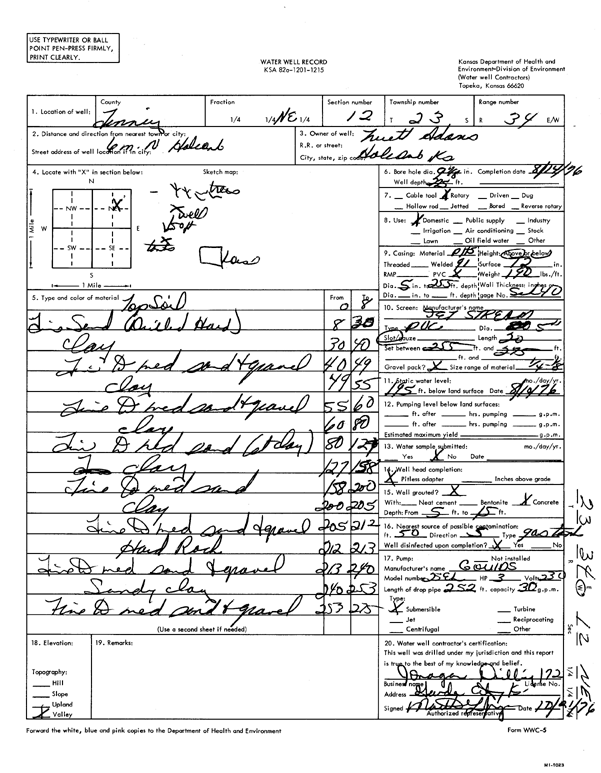 USE TYPEWRITER OR BALL
POINT PEN-PRESS FIRMLY,
PRINT CLEARLY.
WATER WELL RECORD
KSA 82a-1201-1215
Kansas Department of Health and
Environment-Division of Environment
(Water well Contractors)
Topeka, Kansas 66620
1. Location of well:
County
Finney
Fraction
1/4 1/4 NE 1/4
Section number
12
Township number
T 23 S
Range number
R 34 E/W
2. Distance and direction from nearest town or city:
6 mi N Holcomb
Street address of well location if in city:
3. Owner of well:
R.R. or street:
City, state, zip code
Holcomb Ks
4. Locate with "X" in section below:
Sketch map:
N
NW
W
E
SW
SE
S
1 Mile
1 Mile
trees
well
50ft
5. Type and color of material
From
To
Top Soil 0 8
Fine Sand (Drilled Hard) 8 30
Clay 30 40
Fine D med sand & gravel 40 49
clay 49 55
Fine D med sand & gravel 55 60
clay 60 80
Fine D med sand (st clay) 80 127
clay 127 158
Fine D med sand 158 200
Clay 200 205
Fine D med sand & gravel 205 212
Hard Rock 212 213
Fine D med sand & gravel 213 240
Sandy clay 240 253
Fine D med sand & gravel 253 275
(Use a second sheet if needed)
6. Bore hole dia. in. Completion date
Well depth ft.
7. Cable tool X Rotary Driven Dug
Hollow rod Jetted Bored Reverse rotary
8. Use: X Domestic Public supply Industry
Irrigation Air conditioning Stock
Lawn Oil field water Other
9. Casing: Material Height: Above or below
Threaded Welded Surface 12 in.
RMP PVC X Weight 190 lbs./ft.
Dia. 5 in. to 255 ft. depth Wall Thickness: inches or
Dia. in. to ft. depth gage No. Sch 40
10. Screen: Manufacturer's name
JET STREAM
Type PVC Dia. 5"
Slot/gauze Length 20
Set between 255 ft. and 275 ft.
ft. and ft.
Gravel pack? X Size range of material
11. Static water level: mo./day/yr.
195 ft. below land surface Date
12. Pumping level below land surfaces:
ft. after hrs. pumping g.p.m.
ft. after hrs. pumping g.p.m.
Estimated maximum yield g.p.m.
13. Water sample submitted: mo./day/yr.
Yes X No Date
14. Well head completion:
X Pitless adapter Inches above grade
15. Well grouted? X
With: Neat cement Bentonite X Concrete
Depth: From 5 ft. to 15 ft.
16. Nearest source of possible contamination:
ft. 50 Direction S Type
Well disinfected upon completion? X Yes No
17. Pump: Not installed
Manufacturer's name GOULDS
Model number HP 3 Volts 230
Length of drop pipe 252 ft. capacity 30 g.p.m.
Type:
X Submersible Turbine
Jet Reciprocating
Centrifugal Other
18. Elevation:
Topography:
Hill
Slope
Upland
X Valley
19. Remarks:
20. Water well contractor's certification:
This well was drilled under my jurisdiction and this report
is true to the best of my knowledge and belief.
172
Business name License No.
Address Garden City Ks
Signed Date
Authorized representative
Forward the white, blue and pink copies to the Department of Health and Environment
Form WWC-5